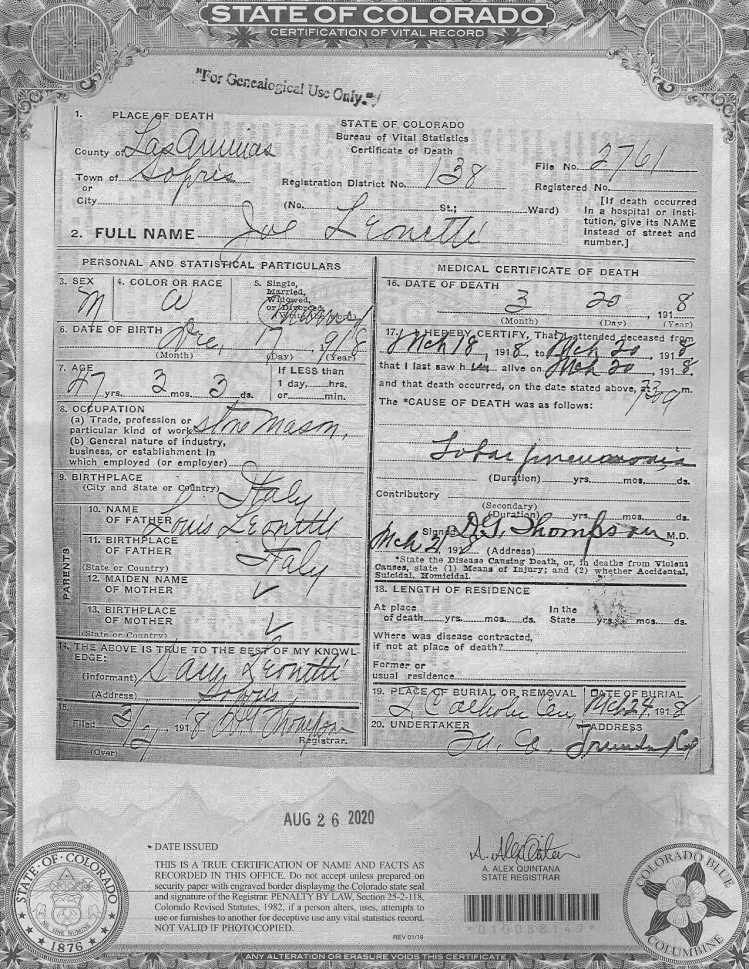 STATE OF COLORADO
CERTIFICATION OF VITAL RECORD
"For Genealogical Use Only."
1. PLACE OF DEATH
County of Las Animas
Town of Sopris
or
City
STATE OF COLORADO
Bureau of Vital Statistics
Certificate of Death
Registration District No. 138
(No. St.; Ward)
File No. 2761
Registered No.
[If death occurred
in a hospital or insti-
tution, give its NAME
instead of street and
number.]
2. FULL NAME Joe Leonetti
PERSONAL AND STATISTICAL PARTICULARS
3. SEX
M
4. COLOR OR RACE
W
5. Single,
Married,
Widowed,
or Divorced
6. DATE OF BIRTH
Dec. 17
(Month) (Day) (Year)
7. AGE
47 yrs. 3 mos. 3 ds.
If LESS than
1 day, hrs.
or min.
8. OCCUPATION
(a) Trade, profession or
particular kind of work Stone Mason,
(b) General nature of industry,
business, or establishment in
which employed (or employer)
9. BIRTHPLACE
(City and State or Country) Italy
PARENTS
10. NAME
OF FATHER Louis Leonetti
11. BIRTHPLACE
OF FATHER
(State or Country) Italy
12. MAIDEN NAME
OF MOTHER
13. BIRTHPLACE
OF MOTHER
(State or Country)
14. THE ABOVE IS TRUE TO THE BEST OF MY KNOWL-
EDGE:
(Informant) Leonetti
(Address) Sopris
15.
Filed 3/21 1918 Thompson
Registrar.
(Over)
MEDICAL CERTIFICATE OF DEATH
16. DATE OF DEATH
3 20, 1918
(Month) (Day) (Year)
17. I HEREBY CERTIFY, That I attended deceased from
Mch 18, 1918, to Mch 20 1918
that I last saw him alive on Mch 20 1918.
and that death occurred, on the date stated above, at m.
The *CAUSE OF DEATH was as follows:
Lobar pneumonia
(Duration) yrs. mos. ds.
Contributory
(Secondary)
(Duration) yrs. mos. ds.
Signed Thompson M.D.
Mch 21 1918 (Address)
*State the Disease Causing Death, or, in deaths from Violent
Causes, state (1) Means of Injury; and (2) whether Accidental,
Suicidal, Homicidal.
18. LENGTH OF RESIDENCE
At place
of death yrs. mos. ds.
In the
State yrs. mos. ds.
Where was disease contracted,
if not at place of death?
Former or
usual residence
19. PLACE OF BURIAL OR REMOVAL
Catholic Cem
DATE OF BURIAL
Mch 24, 1918
20. UNDERTAKER
Co.
ADDRESS
AUG 26 2020
DATE ISSUED
THIS IS A TRUE CERTIFICATION OF NAME AND FACTS AS
RECORDED IN THIS OFFICE. Do not accept unless prepared on
security paper with engraved border displaying the Colorado state seal
and signature of the Registrar. PENALTY BY LAW, Section 25-2-118,
Colorado Revised Statutes, 1982, if a person alters, uses, attempts to
use or furnishes to another for deceptive use any vital statistics record.
NOT VALID IF PHOTOCOPIED.
REV 01/19
A. Alex Quintana
A. ALEX QUINTANA
STATE REGISTRAR
STATE OF COLORADO
1876
COLORADO BLUE
COLUMBINE
ANY ALTERATION OR ERASURE VOIDS THIS CERTIFICATE